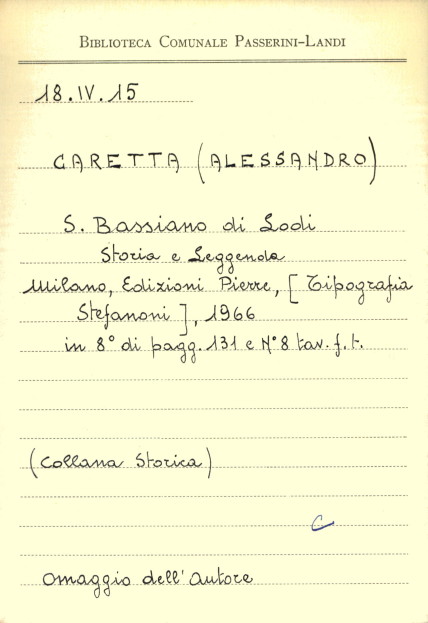 BIBLIOTECA COMUNALE PASSERINI-LANDI
18.IV.15
CARETTA (ALESSANDRO)
S. Bassiano di Lodi
Storia e Leggenda
Milano, Edizioni Pierre, [Tipografia
Stefanoni], 1966
in 8° di pagg. 131 e N° 8 tav. f. t.
(Collana Storica)
C
Omaggio dell'Autore